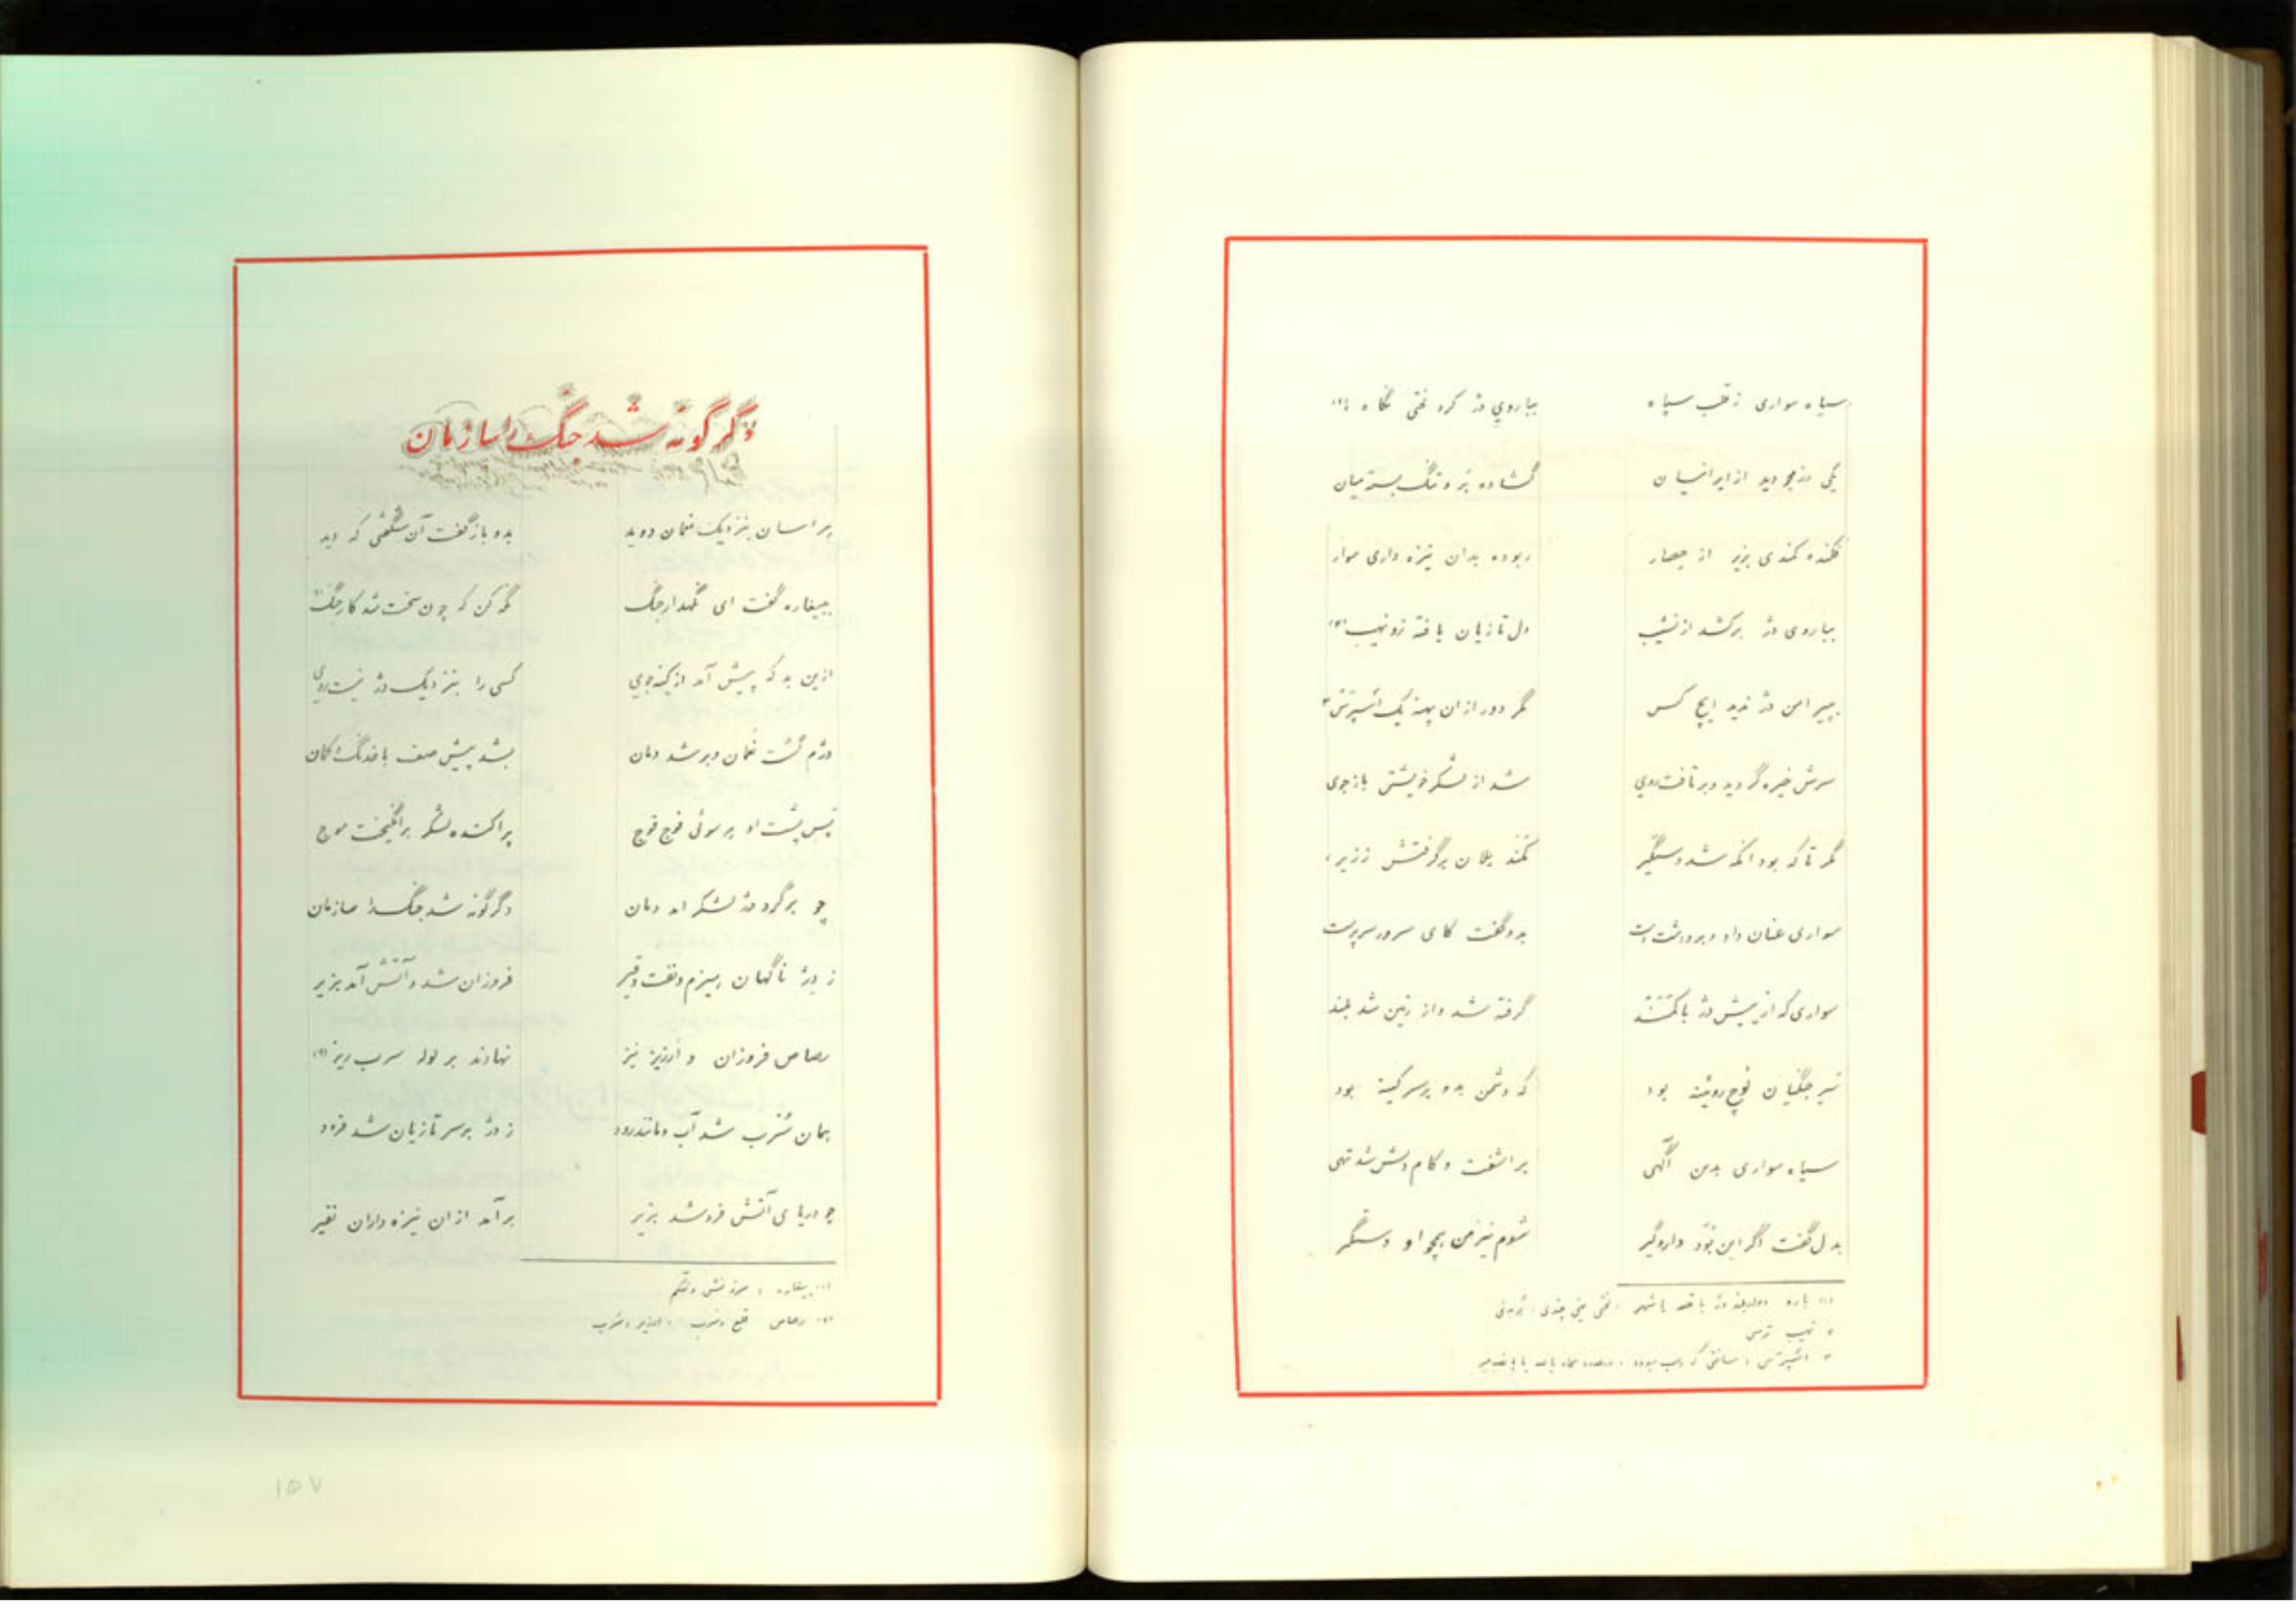 سیاه سواری ز قلب سپاه بباروی دژ کرد لختی نگاه (۱)
یکی رزمجو دید از ایرانیان گشاده بر و تنگ بسته میان
فکنده کمندی بزیر از حصار ربوده بدان نیزه داری سوار
بباروی دژ برکشد از نشیب دل تازیان یافته زو نهیب (۲)
بپیرامن دژ ندید ایچ کس مگر دور از آن پهنه یک اسپرس ۳
سرش خیره گردید و بر تافت روی شد از لشکر خویشتن بازجوی
مگر تا که بود آنکه شد دستگیر کمند یلان برگرفتش ززیر
سواری عنان داد و برداشت دست بدو گفت کای سرور سرپرست
سواری که از پیش دژ با کمند گرفته شد و از زمین شد بلند
سر جنگیان فوج روئینه بود که دشمن بدو بر سر کینه بود
سیاه سواری بدین آگهی برآشفت و کام دلش شد تهی
بدل گفت اگر این بود داروگیر شوم نیز من همچو او دستگیر
(۱) باره دیوار بلند دژ یا قلعه یا شهر
۲ نهیب ترس
۳ اسپرس
دگرگونه شد جنگ را سازمان
هراسان بنزدیک نعمان دوید بدو باز گفت آن شگفتی که دید
ببیغاره گفت ای نگهدار جنگ نگه کن که چون سخت شد کار جنگ
ازین بد که پیش آمد از کینه جوی کسی را بنزدیک دژ نیست روی
دژم گشت نعمان و بر شد دمان بشد پیش صف با خدنگ و کمان
پس پشت او هر سوئی فوج فوج پراکنده لشکر برانگیخت موج
چو برگرد دژ لشکر آمد دمان دگرگونه شد جنگ را سازمان
ز دژ ناگهان هیزم و نفت و قیر فروزان شد و آتش آمد بزیر
رصاص فروزان و ارزیز نیز نهادند بر لوله سرب ریز (۲)
همان سُرب شد آب و مانند رود ز دژ بر سر تازیان شد فرود
چو دریای آتش فرو شد بزیر برآمد از آن نیزه داران نفیر
(۱) بیغاره : سرزنش و تهکم
(۲) رصاص قلع و سرب
۱۵۷